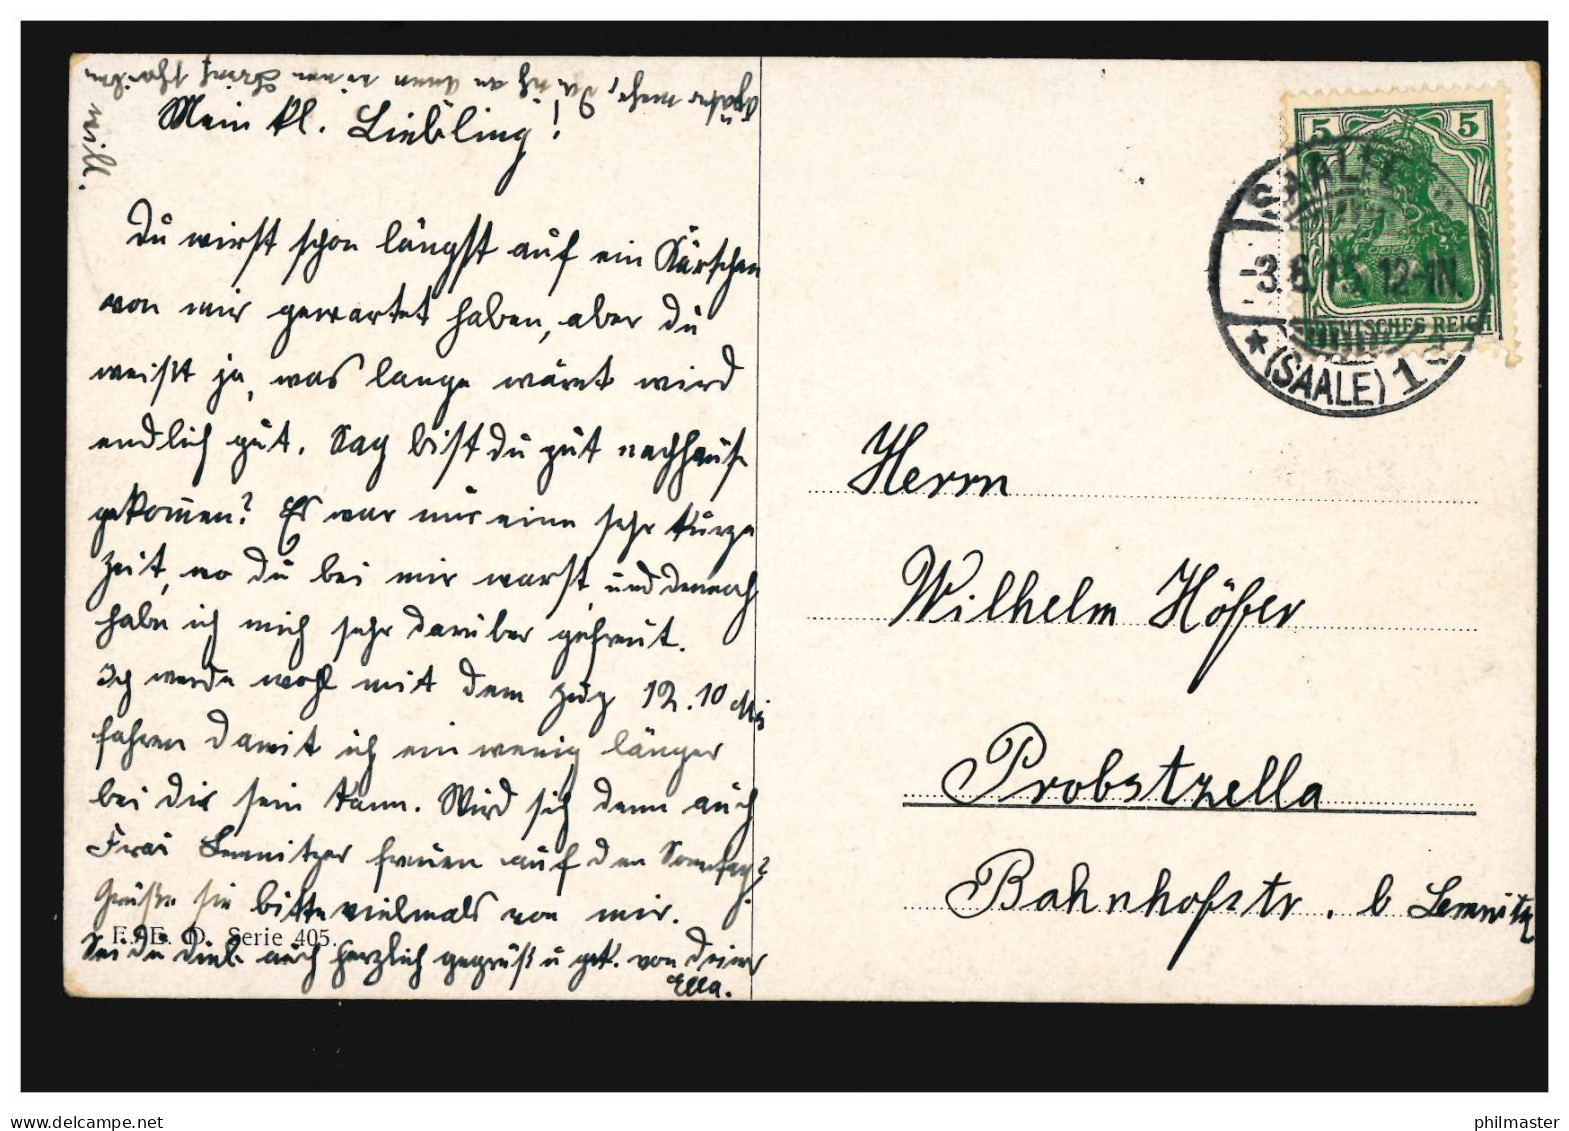 Mein kl. Liebling!
Du wirst schon längst auf ein Kärtchen
von mir gewartet haben, aber du
weißt ja, was lange währt wird
endlich gut. Sag bist du gut nachhause
gekommen? Es war nur eine sehr kurze
Zeit, wo du bei mir warst und dennoch
habe ich mich sehr darüber gefreut.
Ich werde wohl mit dem Zug 12.10
fahren damit ich ein wenig länger
bei dir sein kann. Wird sich denn auch
Frau Lemnitzer freuen auf den Sonntag?
Grüße sie bitte vielmals von mir.
Sei du Lieb. auch herzlich gegrüßt u gek. von deiner
Ella.
will.
F. E. D. Serie 405.
5 5
DEUTSCHES REICH
SAALFELD
-3.6.15. 12-1N.
* (SAALE) 1 a
Herrn
Wilhelm Höfer
Probstzella
Bahnhofstr. b Lemnitz
delcampe.net
philmaster